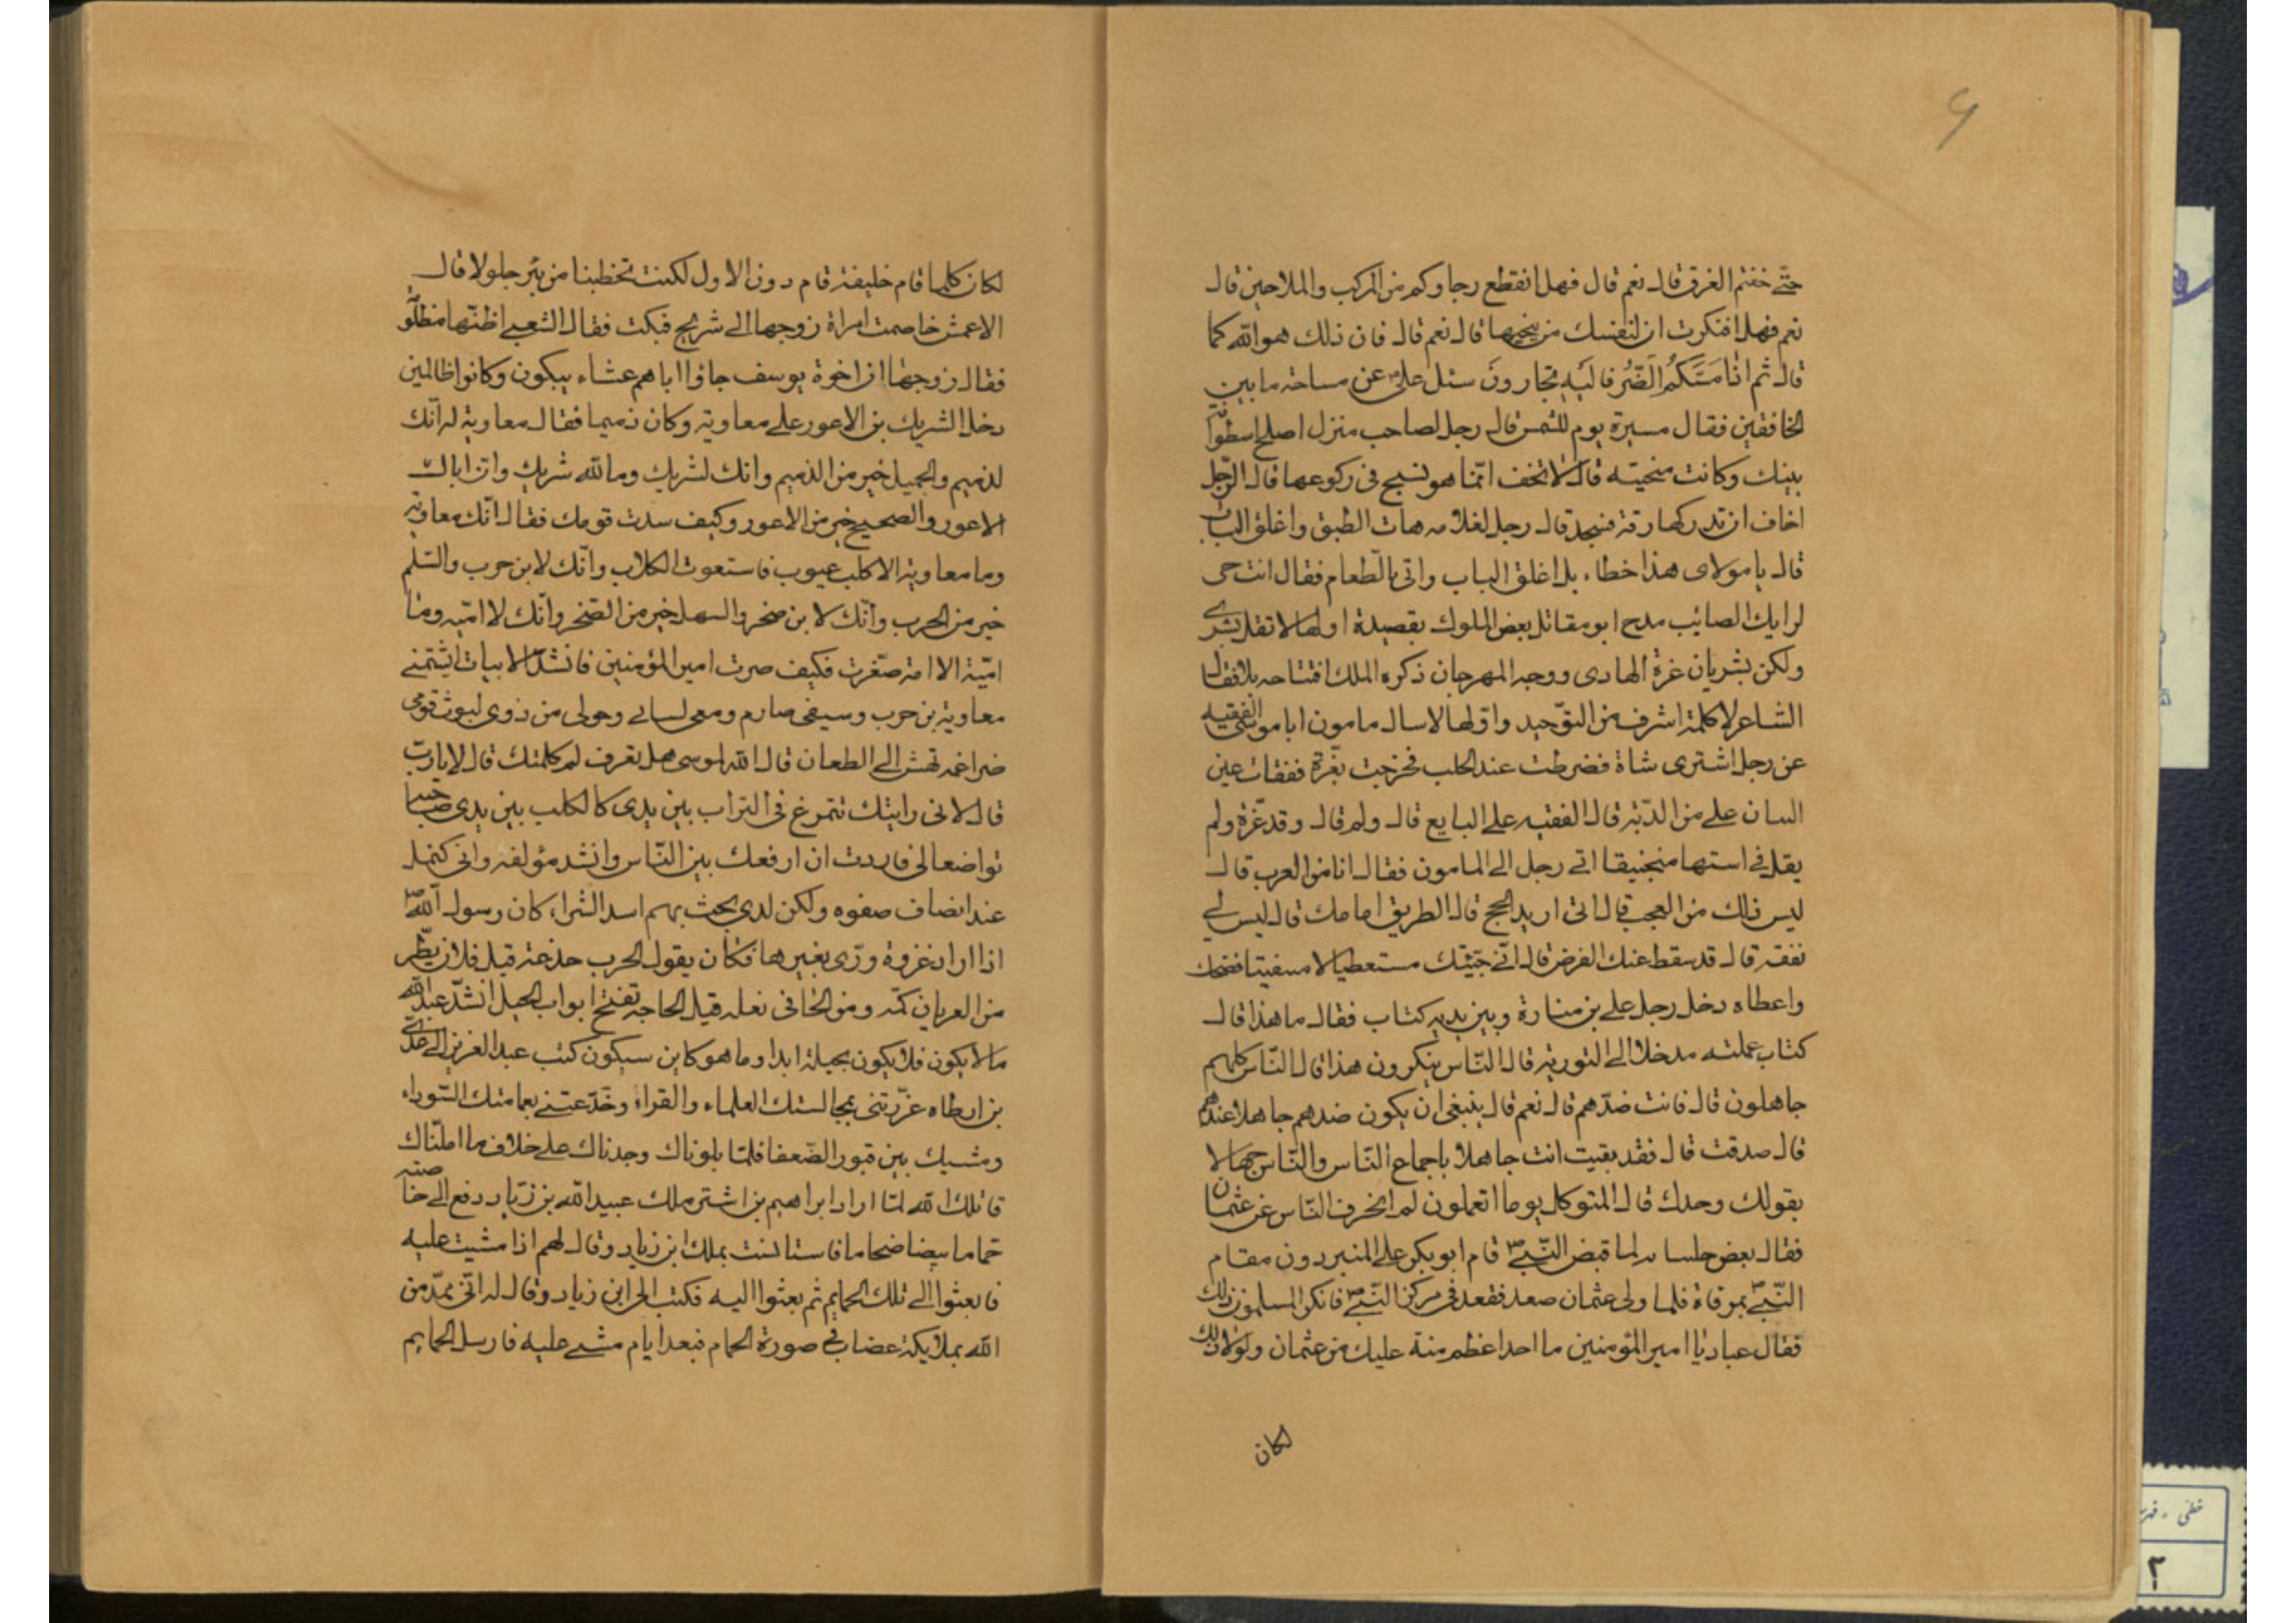 ۶
حتّى خفتم الغرق قال نعم قال فهل انقطع رجاوكم من المركب والملاحين قال
نعم فهل افتكرت ان لنفسك من ينجيها قال نعم قال فان ذلك هو الله كما
قال ثم اذا مَسَّكُمُ الضُّر فاليه تجارونَ سئل علىؑ عن مساحة ما بين
الخافقين فقال مسيرة يوم للشمس قال رجل لصاحب منزل اصلح اسطوانة
بيتك وكانت منحيته قال لا تخف انّما هو تسبيح فى ركوعها قال الرّجل
اخاف ان تدركها رقة فتسجد قال رجل لغلامه هات الطبق واغلق الباب
قال يا مولاى هذا خطاء بل اغلق الباب واتى بالطعام فقال انت حى
لرايك الصائب مدح ابو مقاتل بعض الملوك بقصيدة اولها لا تقل بشرى
ولكن بشريان غرة الهادى ووجه المهرجان ذكره الملك افتتاحه بلا فقال
الشاعر لا كلمة اشرف من التوّحيد واوّلها لا سال مامون ابا موسى الفقيه
عن رجل اشترى شاة فضرطت عند الحلب فخرجت بعرة ففقات عين
انسان على من الدّية قال الفقيه على البايع قال ولم قال وقد غرّه ولم
يقل فى استها منجنيقا اتى رجل الى المامون فقال انا من العرب قال
ليس ذلك من العجب قال انى اريد الحج قال الطريق امامك قال ليس لى
نفقة قال قد سقط عنك الفرض قال انّى جئتك مستعطيا لا مستفيتا فضحك
واعطاه دخل رجل على بن منارة وبين يديه كتاب فقال ما هذا قال
كتاب عملته مدخلا الى التورية قال النّاس ينكرون هذا قال النّاس كلهم
جاهلون قال فانت ضدّهم قال نعم قال ينبغى ان يكون ضدهم جاهلا عندهم
قال صدقت قال فقد بقيت انت جاهلا باجماع النّاس والنّاس جهالا
بقولك وحدك قال المتوكل يوما اتعلمون لم انحرف النّاس عن عثمان
فقال بعض جلسايه لما قبض النّبىؐ قام ابو بكر على المنبر دون مقام
النّبىؐ بمرقاة فلما ولى عثمان صعد فقعد فى مركز النّبىؐ فانكر المسلمون ذلك
فقال عباد يا امير المؤمنين ما احد اعظم منة عليك من عثمان ولولا ذلك
لكان
لكان كلما قام خليفة قام دون الاول لكنت تخطبنا من بئر جلولا قال
الاعمش خاصمت امراة زوجها الى شريح فبكت فقال الشعبى اظنّها مظلومة
فقال زوجها ان اخوة يوسف جاؤا اباهم عشاء يبكون وكانوا ظالمين
دخل الشريك بن الاعور على معاوية وكان ذميما فقال معاوية له انّك
لذميم والجميل خير من الذميم وانك لشريك وما لله شريك وان اباك
الاعور والصحيح خير من الاعور وكيف سدت قومك فقال انّك معاوية
وما معاوية الا كلب عيوب فاستعوت الكلاب وانّك لابن حرب والسّلم
خير من الحرب وانّك لابن صخر والسهل خير من الصّخر وانّك لا اميّه وما
اميّة الا امة صغّرت فكيف صرت امير المؤمنين فانشد الابيات ايشتمنى
معاوية بن حرب وسيفى صارم ومعى لسانى وحولى من ذوى ليوث قومى
ضراغمة تهش الى الطعان قال الله لموسى هل تعرف لم كلمتك قال لا يا ربّ
قال لانى رايتك تتمرغ فى التراب بين يدى كالكلب بين يدى صاحبه
تواضعا لى فاردت ان ارفعك بين النّاس وانشد مؤلفه وانى كنمل
عند انصاف صفوه ولكن لدى بحث بهم اسد الشرا، كان رسول اللهؐ
اذا اراد غزوة ورّى بغيرها فكان يقول الحرب خدعة قيل فلان يطّر
من العريان كمّه ومن الحافى نعله قيل الحاجة تفتح ابواب الحيل انشد عبد الله
ما لا يكون فلا يكون بحيلة ابدا وما هو كاين سيكون كتب عبد العزيز الى عدّى
بن ارطاه غرّتنى بمجالستك العلماء والقراء وخدّعتنى بعمامتك السّوداء
ومشيك بين قبور الضّعفا فلمّا بلوناك وجدناك على خلاف ما املّناك
قاتلك الله لمّا اراد ابراهيم بن اشتر ملك عبيد الله بن زياد دفع الى خاصته
حماما بيضا ضخاما فاستانست بملك ابن زياد وقال لهم اذا مشيت عليه
فابعثوا الى تلك الحمايم ثم بعثوا اليه فكتب الى ابن زياد وقال له انّى بمدّ من
الله بملايكة غضاب فى صورة الحمام فبعد ايام مشى عليه فارسل الحمايم
خطى - فهر
٢